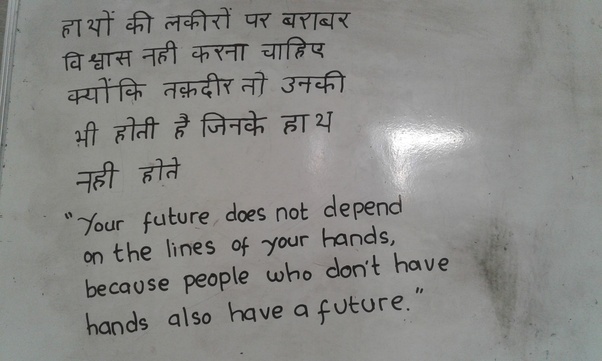 हाथों की लकीरों पर बराबर
विश्वास नही करना चाहिए
क्योंकि तक़दीर तो उनकी
भी होती है जिनके हाथ
नही होते
"Your future does not depend
on the lines of your hands,
because people who don't have
hands also have a future."